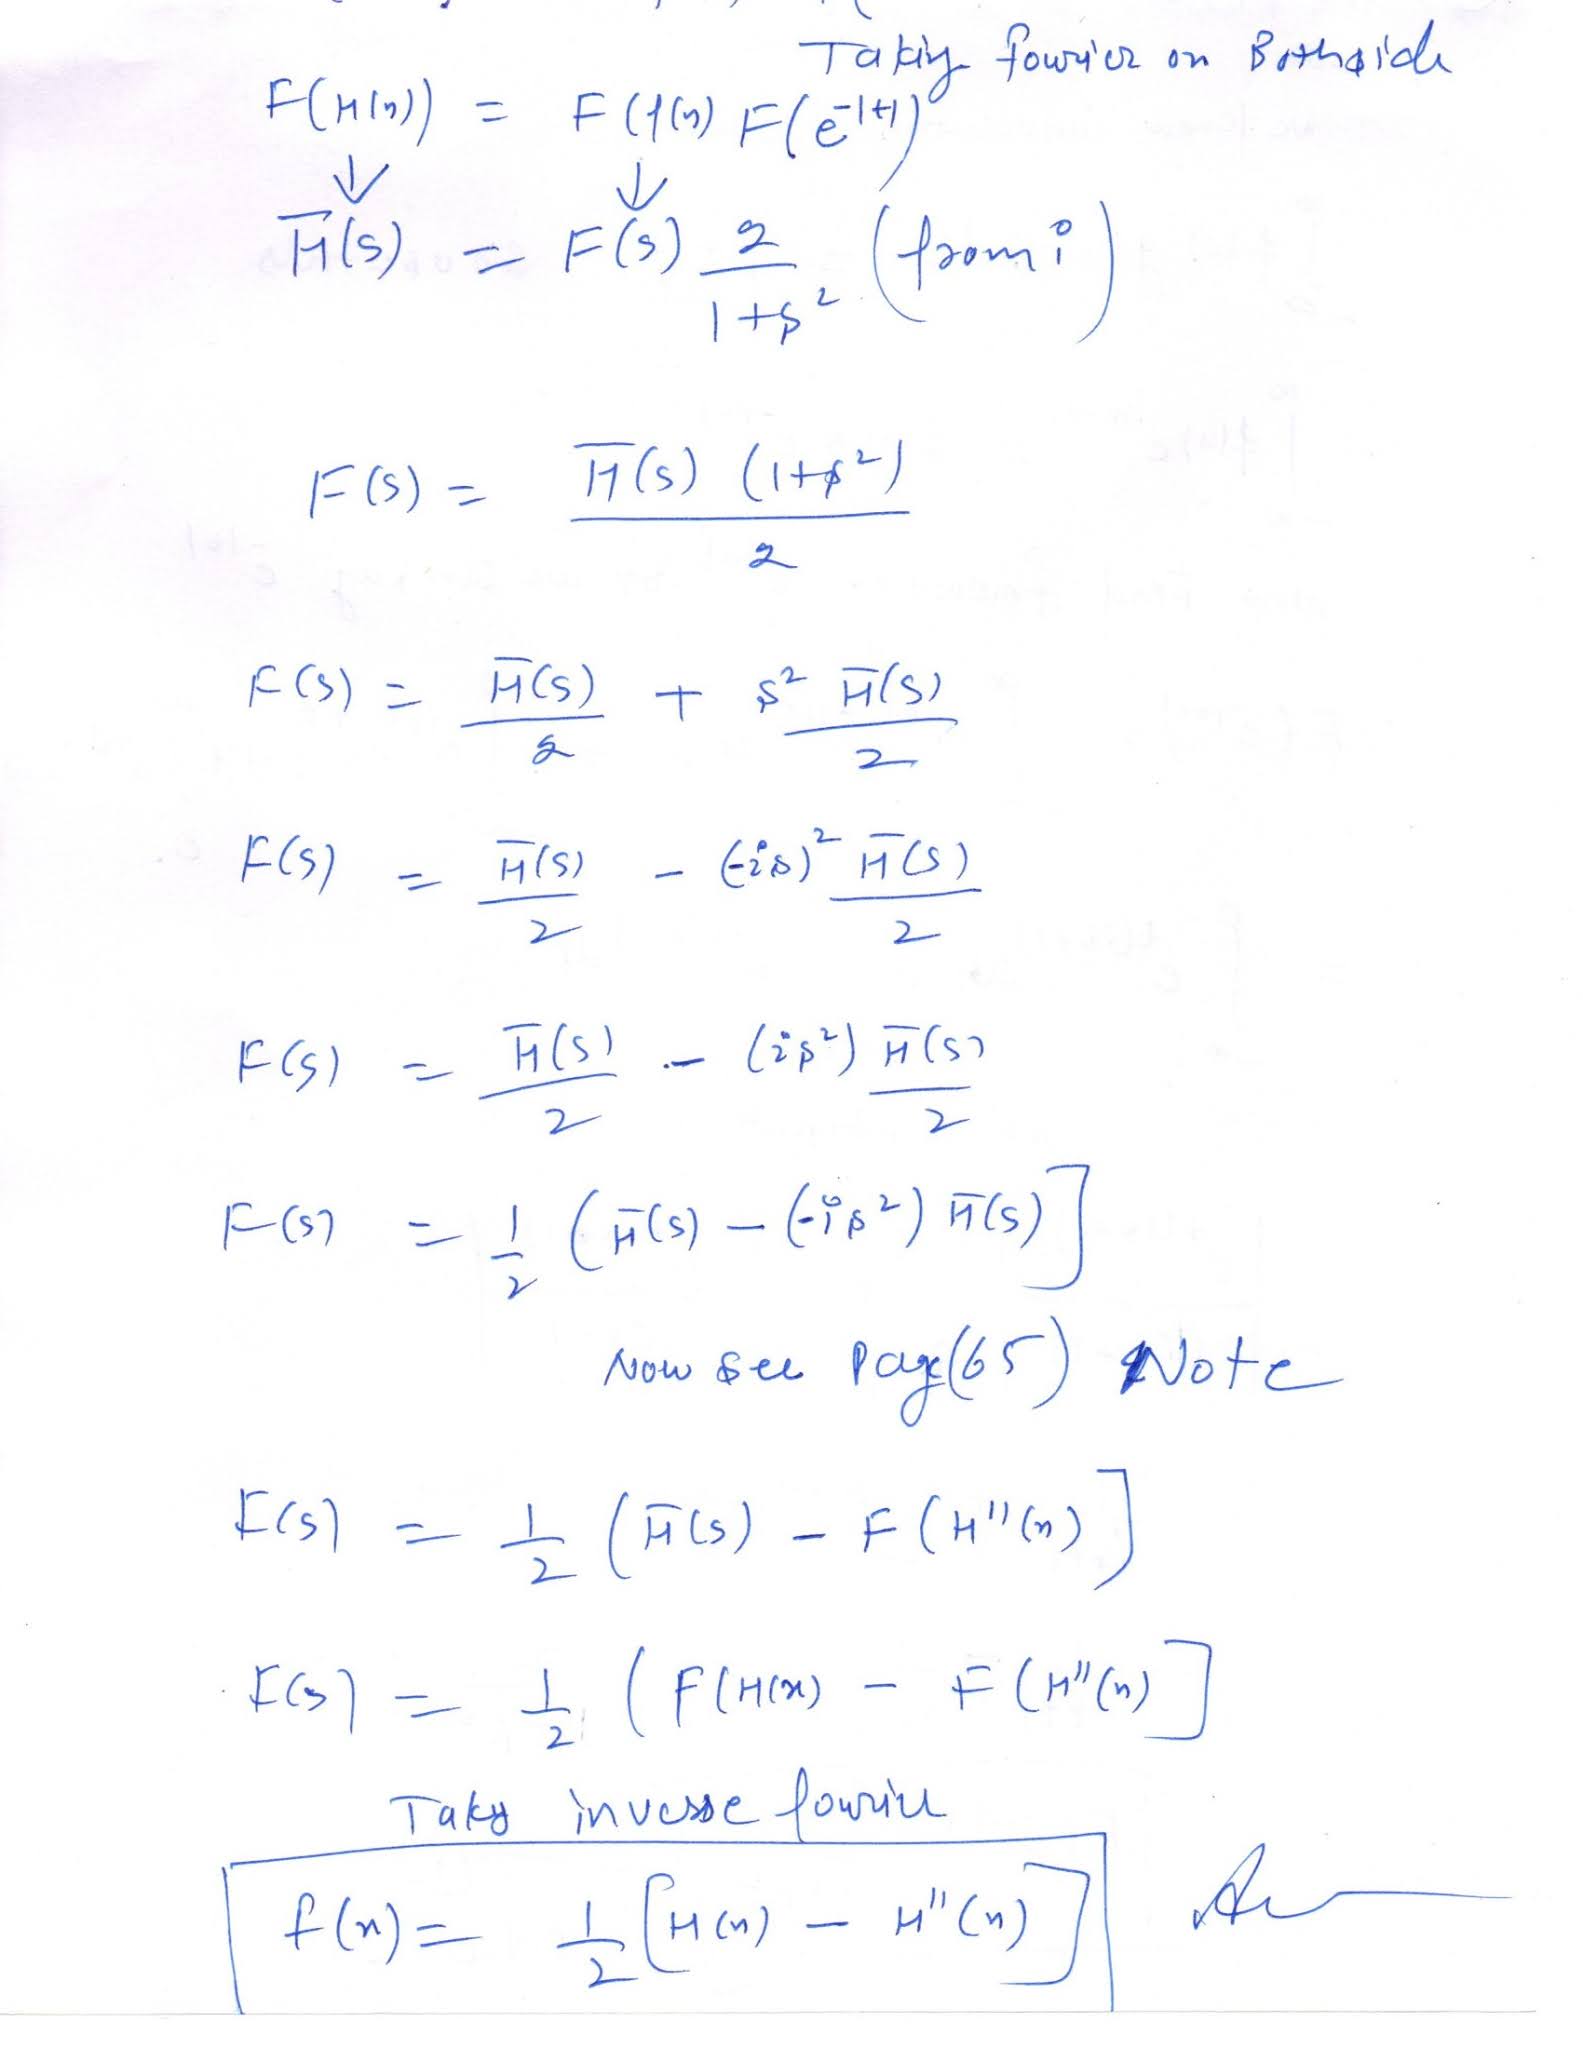 Taking fourier on Bothside
F(H(n)) = F(f(n) F(e^-|t|)
↓ ↓
H̅(s) = F(s) 2/(1+s²) (from i)
F(s) = H̅(s) (1+s²) / 2
F(s) = H̅(s)/2 + s² H̅(s)/2
F(s) = H̅(s)/2 - (-is)² H̅(s)/2
F(s) = H̅(s)/2 - (is²) H̅(s)/2
F(s) = 1/2 ( H̅(s) - (-is²) H̅(s) ]
Now see Page (65) Note
F(s) = 1/2 ( H̅(s) - F(H''(n) ]
F(s) = 1/2 ( F(H(x) - F(H''(n) ]
Taky inverse fourier
f(n) = 1/2 [H(n) - H''(n)]